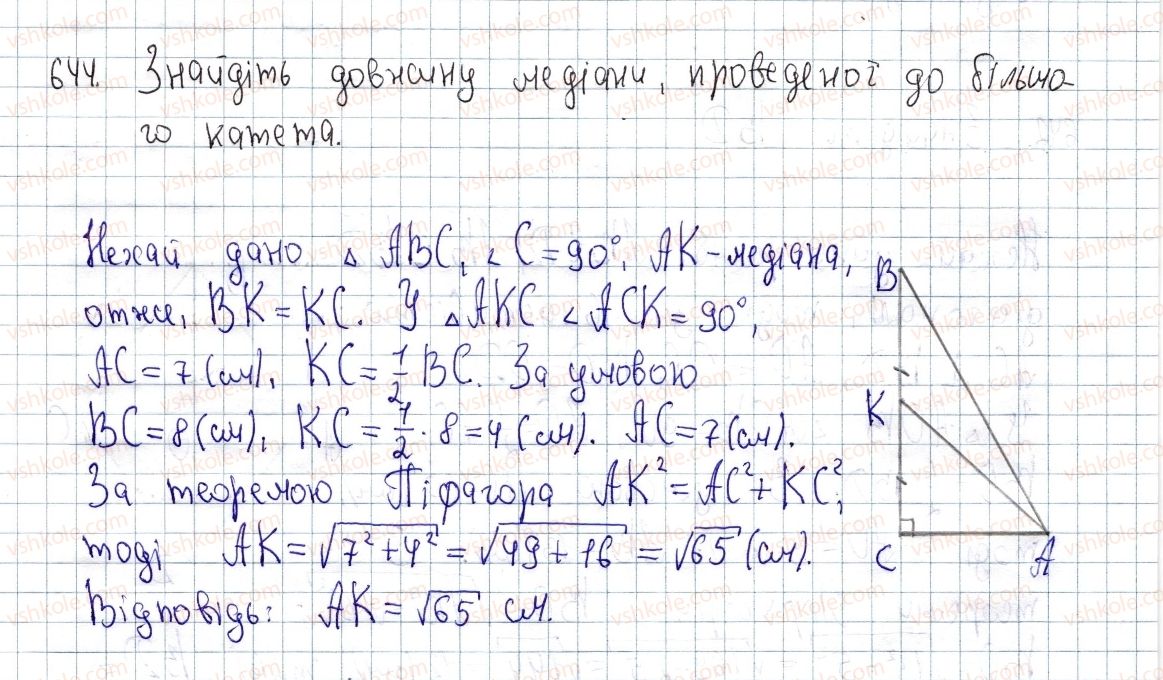 644. Знайдіть довжину медіани, проведеної до більшо-
го катета.
Нехай дано △ ABC, ∠ C = 90°, AK – медіана,
отже, BK = KC. У △ AKC ∠ ACK = 90°,
AC = 7 (см), KC = 1/2 BC. За умовою
BC = 8 (см), KC = 1/2 · 8 = 4 (см). AC = 7 (см).
За теоремою Піфагора AK² = AC² + KC²,
тоді AK = √7² + 4² = √49 + 16 = √65 (см).
Відповідь: AK = √65 см.
B
K
C A